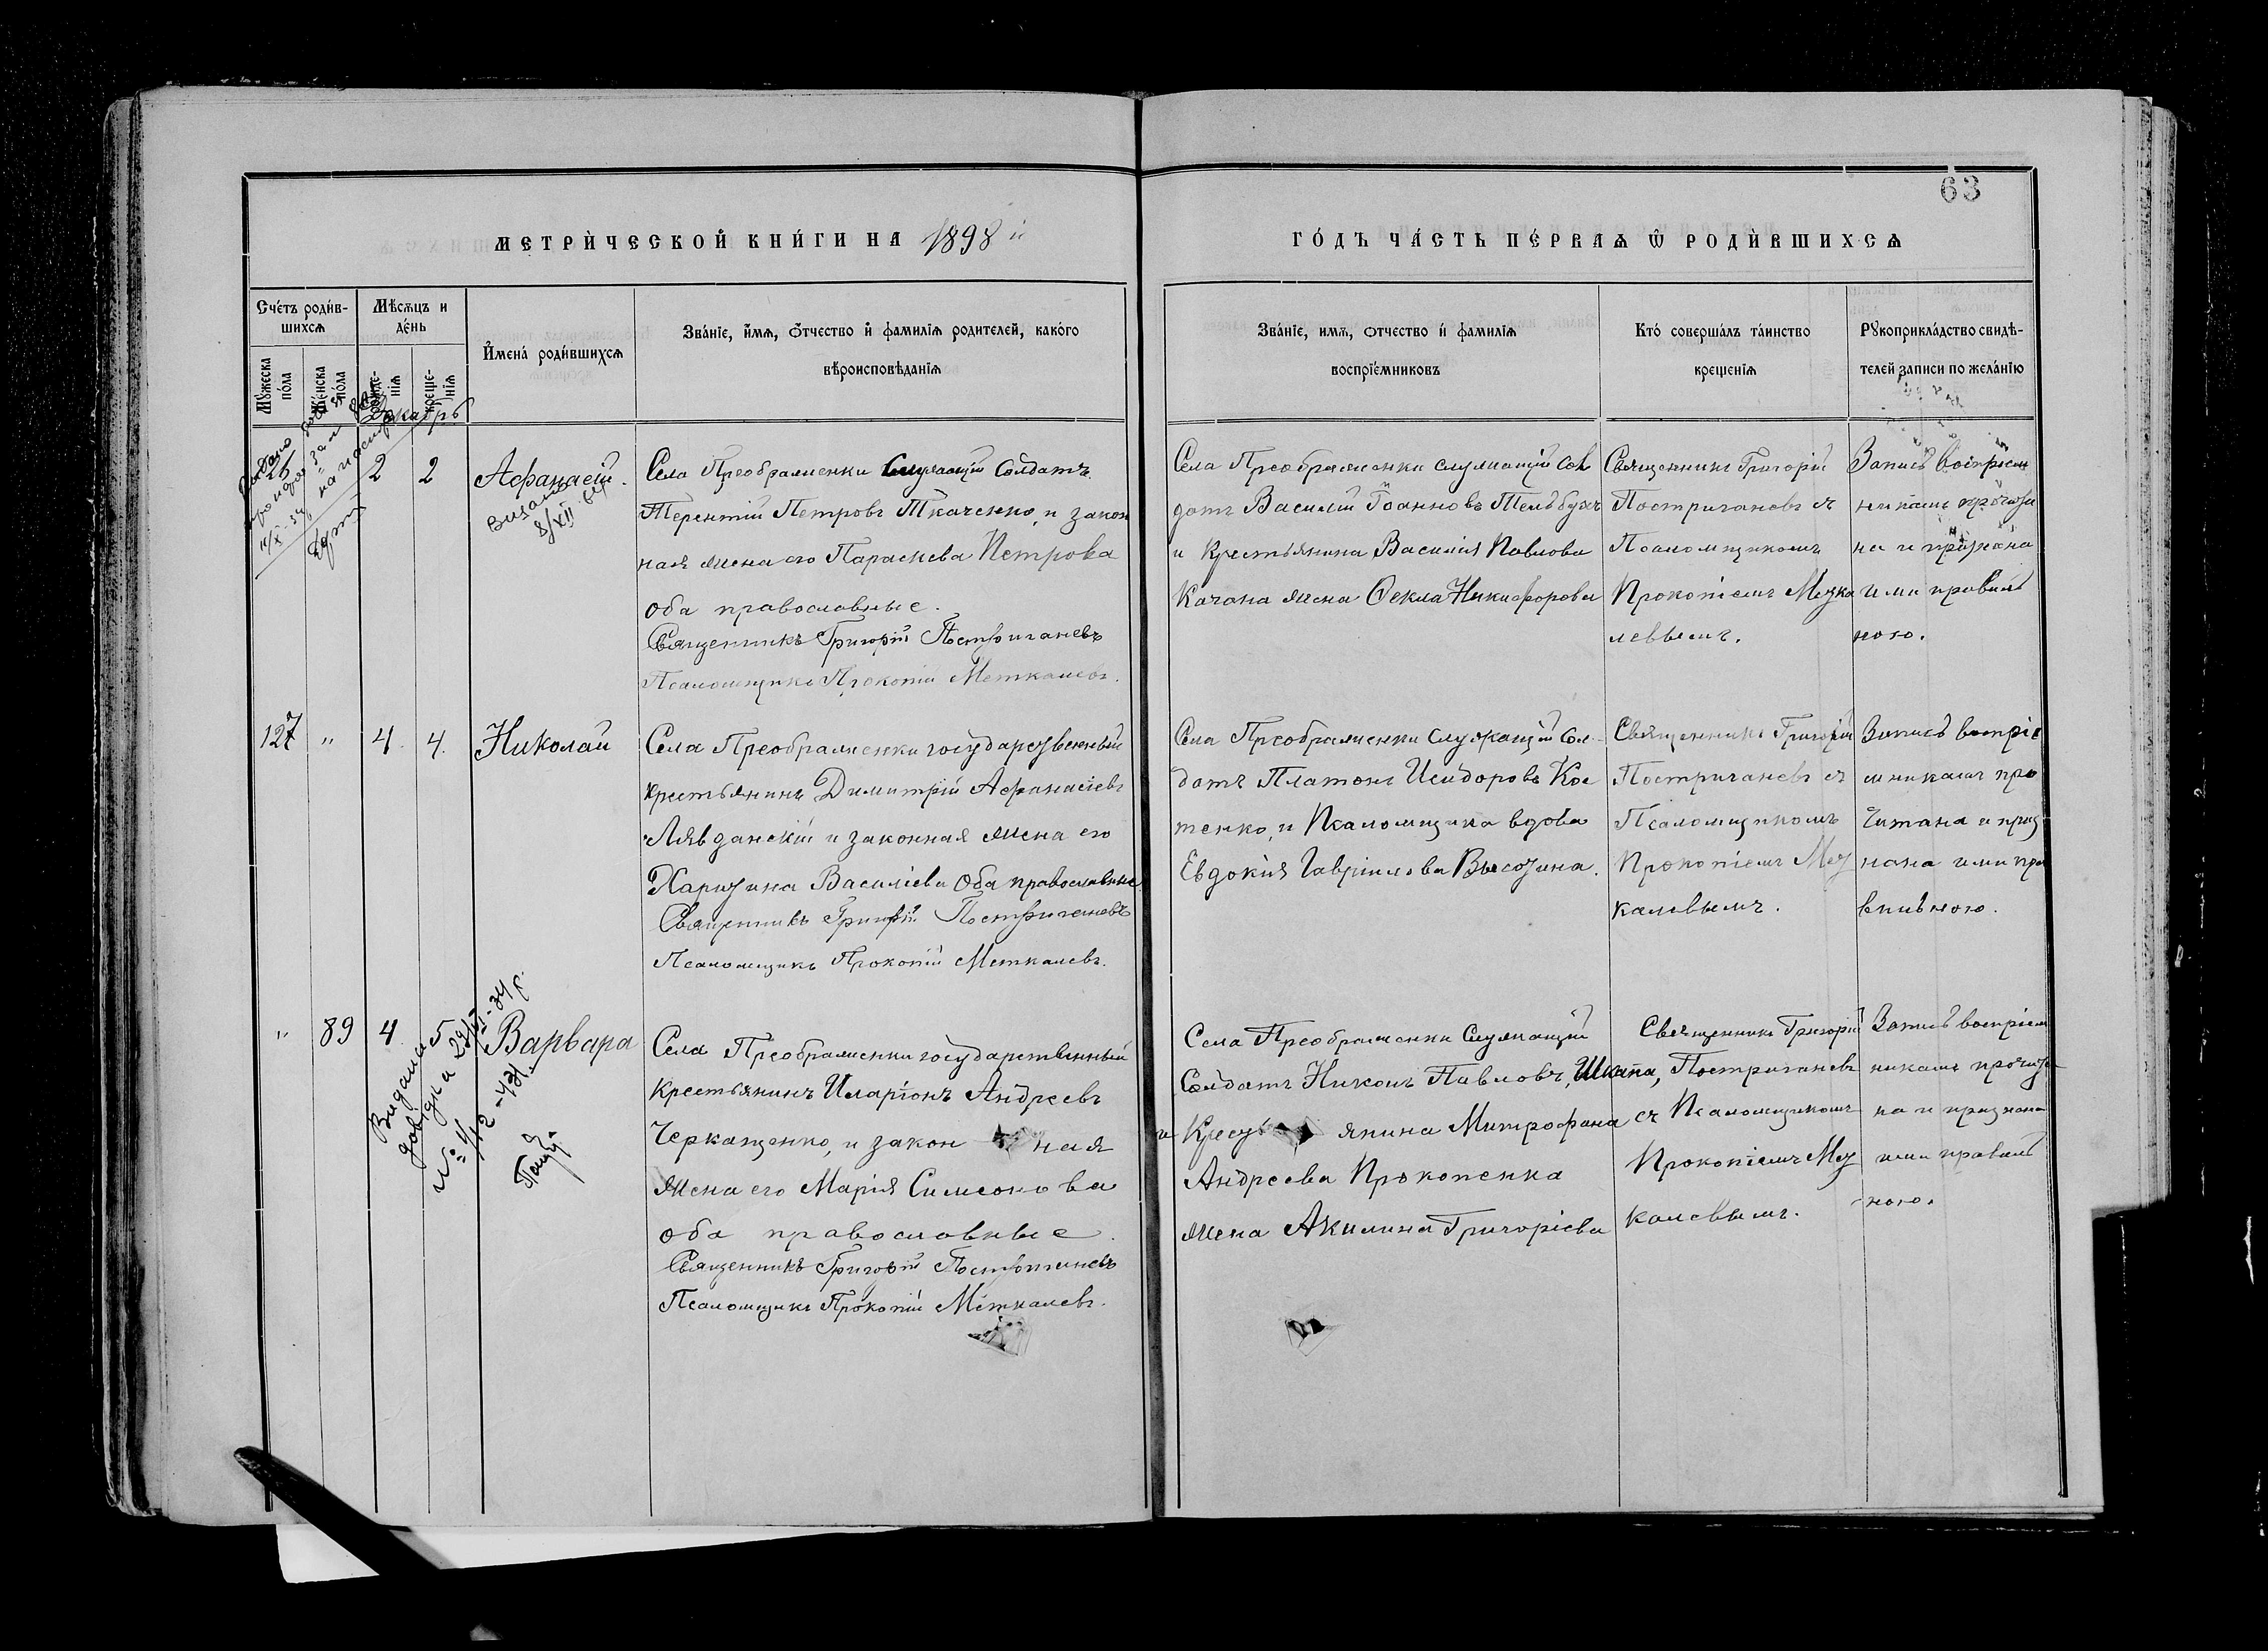 63
МЕТРИ́ЧЕСКОЙ КНИ́ГИ НА 1898 й
ГО́ДЪ ЧА́СТЬ ПЕ́РВАѦ Ѿ РОДИ́ВШИХСѦ
Сче́тъ роди́в-
шихсѧ
Мѣ́сѧцъ и
де́нь
Мꙋ́жеска
по́ла
Же́нска
по́ла
рожде-
нїѧ
креще-
нїѧ
И҆мена́ роди́вшихсѧ
Зва́нїе, и҆́мѧ, ѻ҆́тчество и҆ фамилїѧ родителей, како́го
вѣроисповѣ́данїѧ
Зва́нїе, имѧ, ѻтчество и҆ фамилїѧ
воспрїе́мниковъ
Кто̀ соверша́лъ та́инство
креще́нїѧ
Рꙋкоприкла́дство свидѣ́-
телей записи по жела́нїю
Декабрь
2 2 Афанасій.
Села Преображенки Служащій Солдатъ
Терентій Петровъ Ткаченко, и закон
ная жена его Параскева Петрова
оба православные.
Священникъ Григорій Постригановъ
Псаломщикъ Прокопій Меткалевъ.
Села Преображенки служащій Сол
датъ Василій Іоанновъ
и Крестьянина Василія Павлова
Качана жена Ѳекла Никифорова
Священникъ Григорій
Постригановъ съ
Псаломщикомъ
Прокопіемъ Метка
левымъ.
Запись воспріем
никамъ прочита
на и признана
ими правиль
ною.
127 " 4. 4. Николай
Села Преображенки государственный
крестьянинъ Димитрій Афанасіевъ
Лявданскій и законная жена его
Харитина Василіева Оба православные
Священникъ Григорій Постригановъ
Псаломщикъ Прокопій Меткалевъ.
Села Преображенки служащій Сол-
датъ Платонъ Исидоровъ Кос
тенко, и Псаломщика вдова
Евдокія Гавріилова Высочина.
Священникъ Григорій
Постригановъ съ
Псаломщикомъ
Прокопіемъ Мет
калевымъ.
Запись воспріе
мникамъ про
читана и приз
нана ими пра
вильною.
" 89 4 5 Варвара
Видана
довідка 29/VI-34 р.
Села Преображенки государственный
крестьянинъ Иларіонъ Андреевъ
Черкащенко, и закон ная
жена его Марія Симеонова
оба православные.
Священникъ Григорій Постригановъ
Псаломщикъ Прокопій Меткалевъ.
Села Преображенки Служащій
Солдатъ Никонъ Павловъ Шкапа,
и Крест янина Митрофана
Андреева Прокопенка
жена Акилина Григоріева
Священникъ Григорій
Постригановъ
съ Псаломщикомъ
Прокопіемъ Мет
калевымъ.
Запись воспріем
никамъ прочита
на и признана
ими правиль
ною.